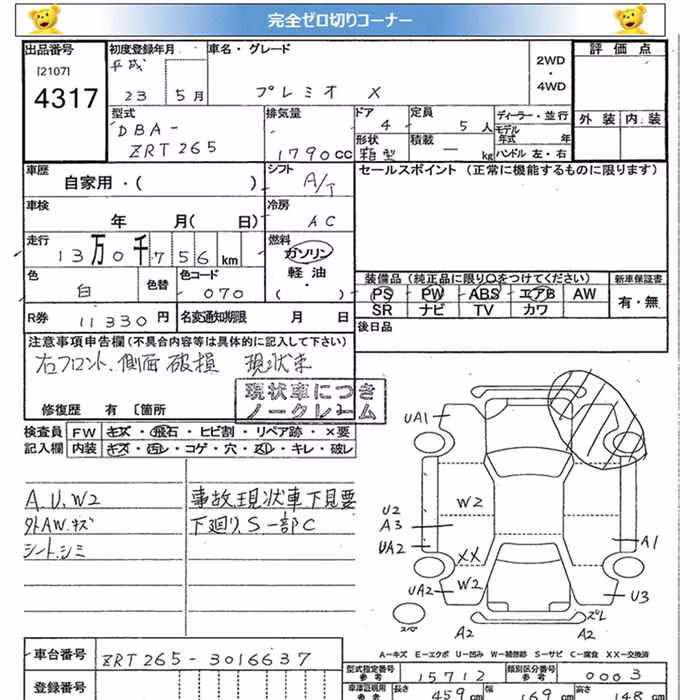 完全ゼロ切りコーナー
出品番号 初度登録年月 車名・グレード 2WD・4WD 評価点
[2107] 平成
4317 23 5月 プレミオ X
型式 排気量 ドア 定員 ディーラー・並行 外装 内装
DBA- 4 5人 モデル年式 年
ZRT265 1790cc 形状 箱型 積載 — kg ハンドル 左・右
車歴 シフト セールスポイント (正常に機能するものに限ります)
自家用・( ) A/T
車検 冷房
年 月( 日) AC
走行 燃料
13万0千756km ガソリン
軽油
( )
色 色替 色コード 装備品(純正品に限り○をつけてください) 新車保証書
白 070 PS PW ABS エアB AW 有・無
SR ナビ TV カワ
R券 11330円 名変通知期限 月 日 後日品
注意事項申告欄(不具合内容等は具体的に記入して下さい)
右フロント、側面破損 現状車
現状車につき
ノークレーム
修復歴 有 〔箇所
検査員 FW キズ・飛石・ヒビ割・リペア跡・×要
記入欄 内装 キズ・汚レ・コゲ・穴・スレ・キレ・破レ
A.U.W2 事故現状車下見要
外AW.キズ 下廻りS一部C
シートシミ
UA1
U2
A3
UA2
W2
XX
W2
UA2
A1
U3
スペ
A2
ズレ
A2
A－キズ E－エクボ U－凹み W－補修跡 S－サビ C－腐食 XX－交換済
車台番号 ZRT265-3016637
型式指定番号 参考 15712 類別区分番号 参考 0003
登録番号
車検証規用 参考 長さ 459cm 幅 169cm 高さ 148cm